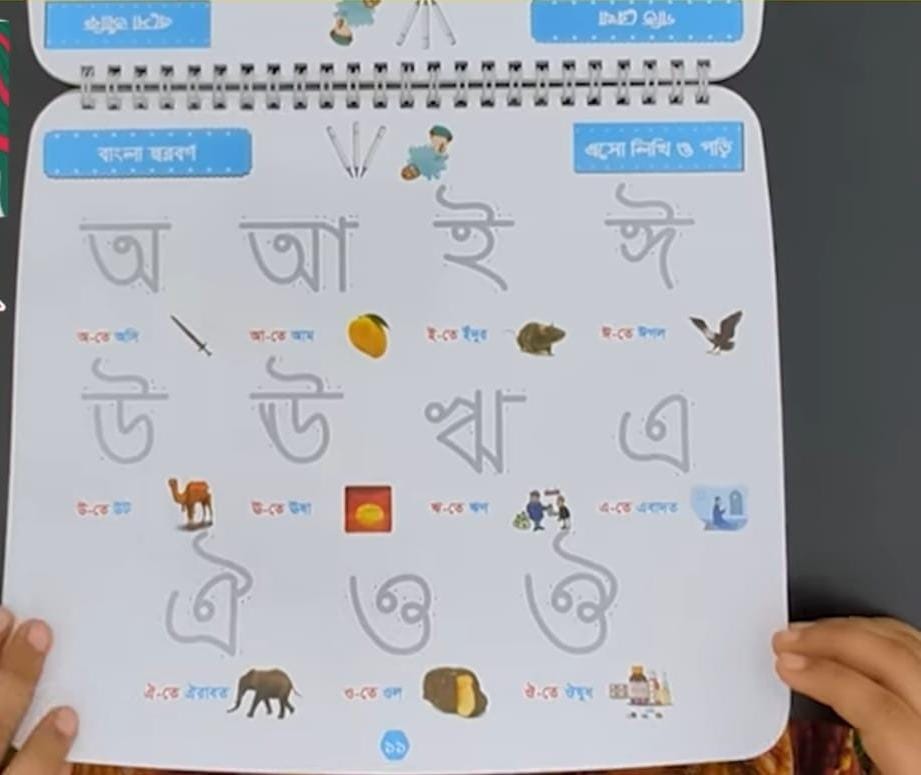 বাংলা স্বরবর্ণ
এসো লিখি ও পড়ি
অ আ ই ঈ
অ-তে অসি আ-তে আম ই-তে ইঁদুর ঈ-তে ঈগল
উ ঊ ঋ এ
উ-তে উট ঊ-তে ঊষা ঋ-তে ঋণ এ-তে এবাদত
ঐ ও ঔ
ঐ-তে ঐরাবত ও-তে ওল ঔ-তে ঔষুধ
১১